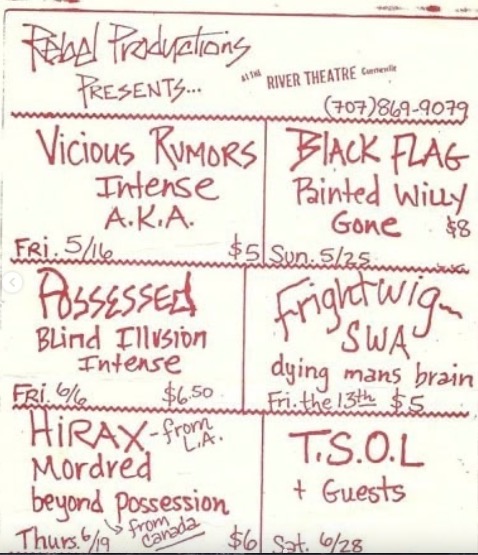 Rebel Productions
PRESENTS...
AT THE RIVER THEATRE Guerneville
(707)869-9079
VICIOUS RUMORS
Intense
A.K.A.
FRI. 5/16 $5
BLACK FLAG
Painted Willy
Gone $8
Sun. 5/25
POSSESSED
BLIND ILLUSION
Intense
FRI. 6/6 $6.50
Frightwig
SWA
dying mans brain
Fri. the 13th $5
HIRAX - from L.A.
Mordred
beyond Possession
from Canada
Thurs. 6/19 $6
T.S.O.L
+ Guests
Sat. 6/28